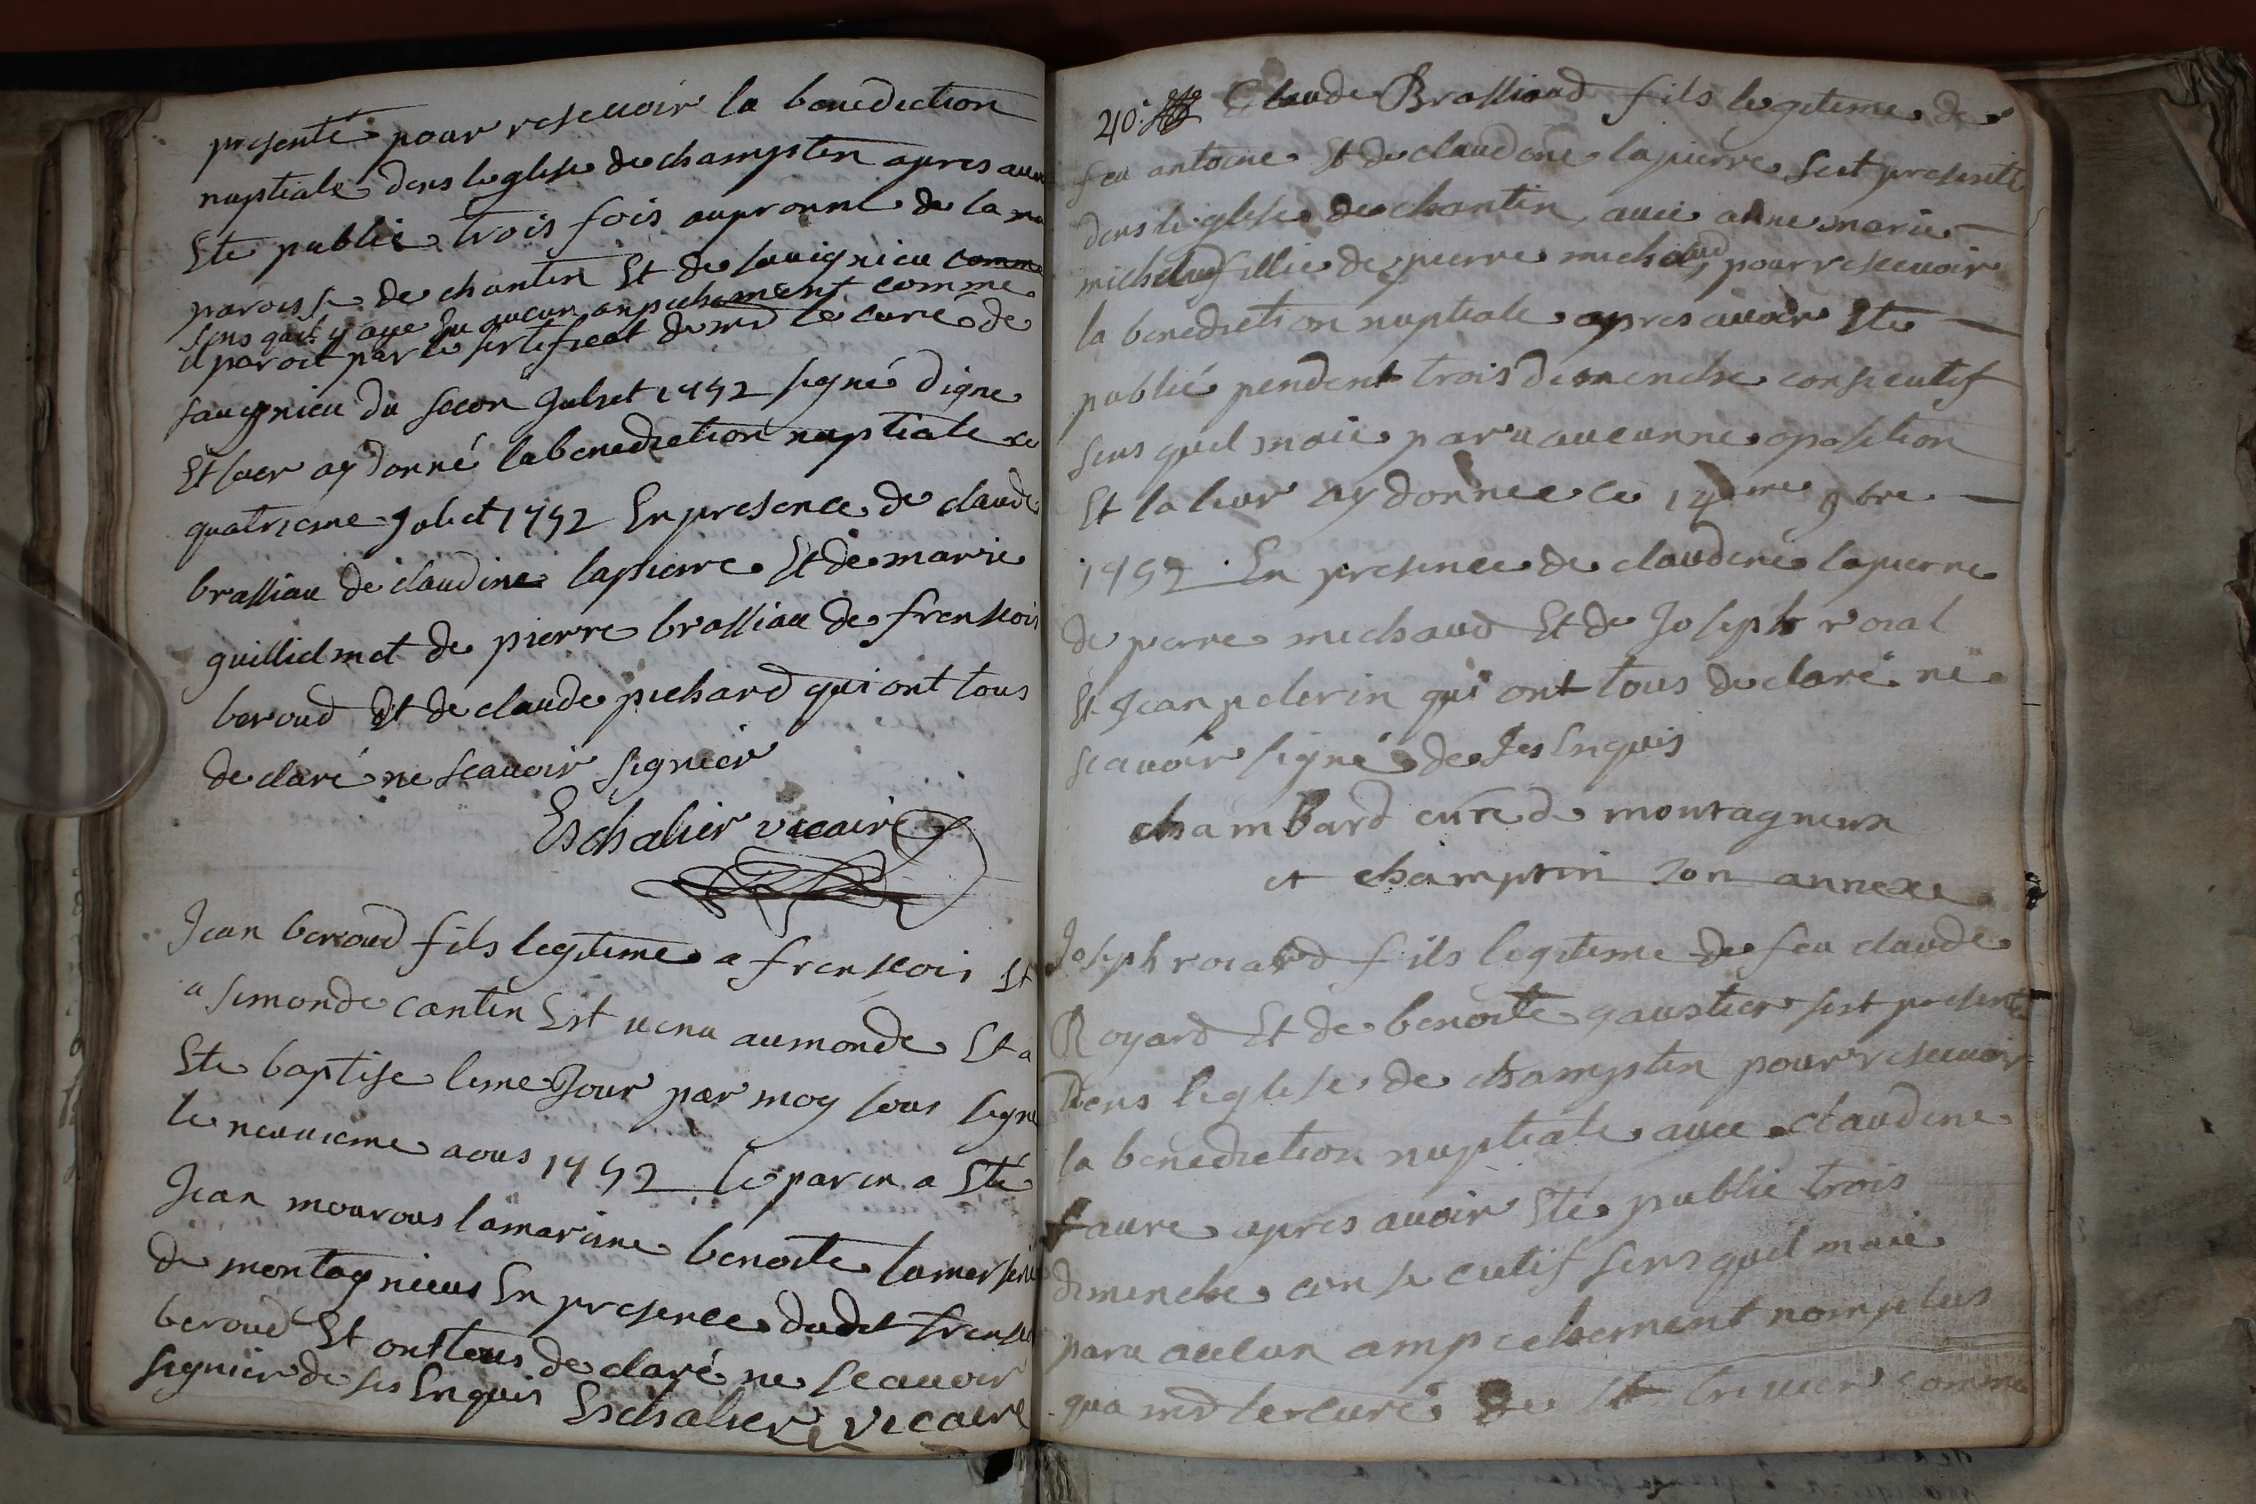 presenté pour resevoir la benediction
nuptiale dens leglise de champten apres avoir
Ete publié trois fois aupronne de la me
paroisse de chantin Et de savignieu comme
sens quil y aye Eu aucun anpechement comme
il paroit par le sertificat de mr le curé de
savignieu du secon Juliet 1752 signé digne
Et leur ay donné la benediction nuptiale ce
quatrieme Juliet 1752 En presence de claude
brassiau de claudine lapierre Et de marie
guillielmet de pierre brassiau de frensois
beroud Et de claude pichard qui ont tous
de claré ne scavoir signier
Eschalier vicaire
Jean beroud fils legitime a frensois Et
a simonde cantin Est venu au monde Et a
Ete baptise leme Jour par moy sous signé
le neuvieme aous 1752 le parin a Eté
Jean mourous lamarine benoite lamersier
de montagnieus En presence dudet frensois
beroud Et ont tous de claré ne scavoir
signier de ses Enquis Eschalier vicaire
40e Claude Brassiaud fils legitime de
feu antoine Et de claudine lapierre sest presenté
dens leglise de chantin avec anne marie
michaud fillie de pierre michaud pour resevoir
la benediction nuptiale apres avoir Ete
publié pendent trois dimenche consecutif
sens quil maie paru aucunne oposition
Et la leur ay donnée ce 14eme 9bre
1752 En presence de claudine lapierre
de pierre michaud Et de Joseph roial
Et Jean pelerin qui ont tous de claré ne
scavoir signé de ses Enquis
chambard curé de montagneux
et champtin son annexe
Joseph roiard fils legitime de feu claude
Royard Et de benoite gautier sest presenté
dens leglise de champten pour resevoir
la benediction nuptiale avec claudine
faure apres avoir Ete publié trois
dimenche consecutif sens quil maie
paru aucun ampechement nomplus
qua mr le curé de St trivier comme